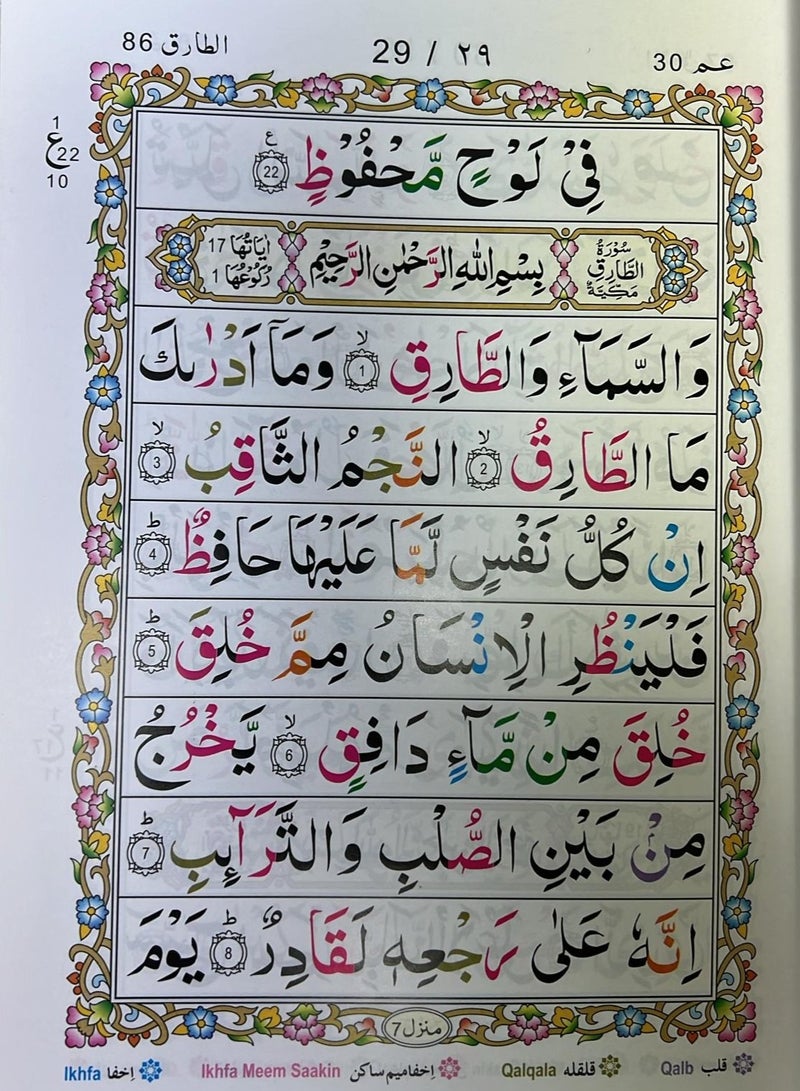 الطارق 86
29 / ٢٩
عم 30
1
ع 22
10
فِيْ لَوْحٍ مَّحْفُوْظٍ ع 22
سُوْرَةُ الطَّارِقِ مَكِّيَّةٌ
بِسْمِ اللهِ الرَّحْمٰنِ الرَّحِيْمِ
اٰيَاتُهَا 17
رُكُوْعُهَا 1
وَالسَّمَآءِ وَالطَّارِقِ ۙ 1 وَمَآ اَدْرٰىكَ
مَا الطَّارِقُ ۙ 2 النَّجْمُ الثَّاقِبُ ۙ 3
اِنْ كُلُّ نَفْسٍ لَّمَّا عَلَيْهَا حَافِظٌ ؕ 4
فَلْيَنْظُرِ الْاِنْسَانُ مِمَّ خُلِقَ ؕ 5
خُلِقَ مِنْ مَّآءٍ دَافِقٍ ۙ 6 يَّخْرُجُ
مِنْۢ بَيْنِ الصُّلْبِ وَالتَّرَآئِبِ ؕ 7
اِنَّهٗ عَلٰى رَجْعِهٖ لَقَادِرٌ ؕ 8 يَوْمَ
منزل 7
Ikhfa اِخفا Ikhfa Meem Saakin اِخفامیم ساکن Qalqala قلقله Qalb قلب